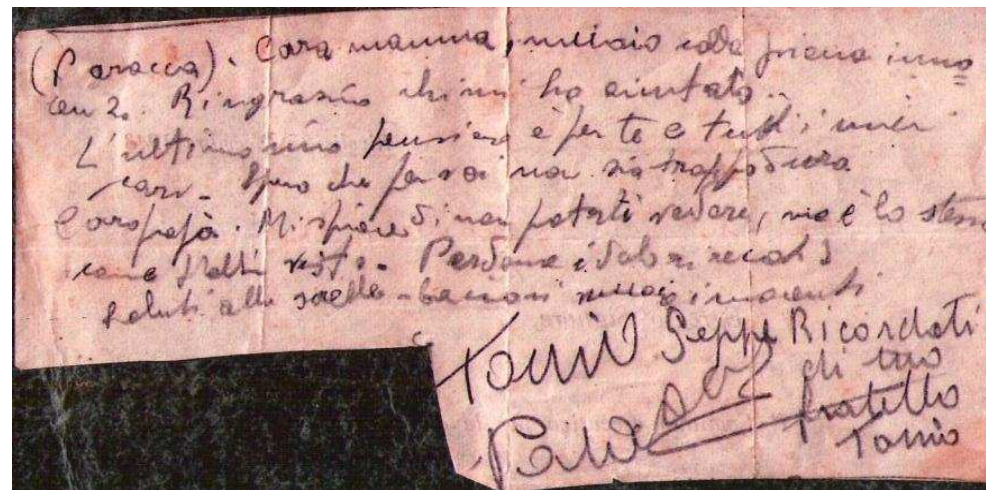 (Paracca). Cara mamma, muoio colla piena inno=
cenza. Ringrazio chi mi ha aiutato..
L'ultimo mio pensiero è per te e tutti i miei
cari. Spero che per voi non sia troppo dura
Caro papà. Mi spiace di non poterti vedere, ma è lo stesso
come t'abbia visto. Perdona i dolori recati
Saluti alle sorelle - bacioni
Tonio Beppe Ricordati
di tuo
fratello
Tonio